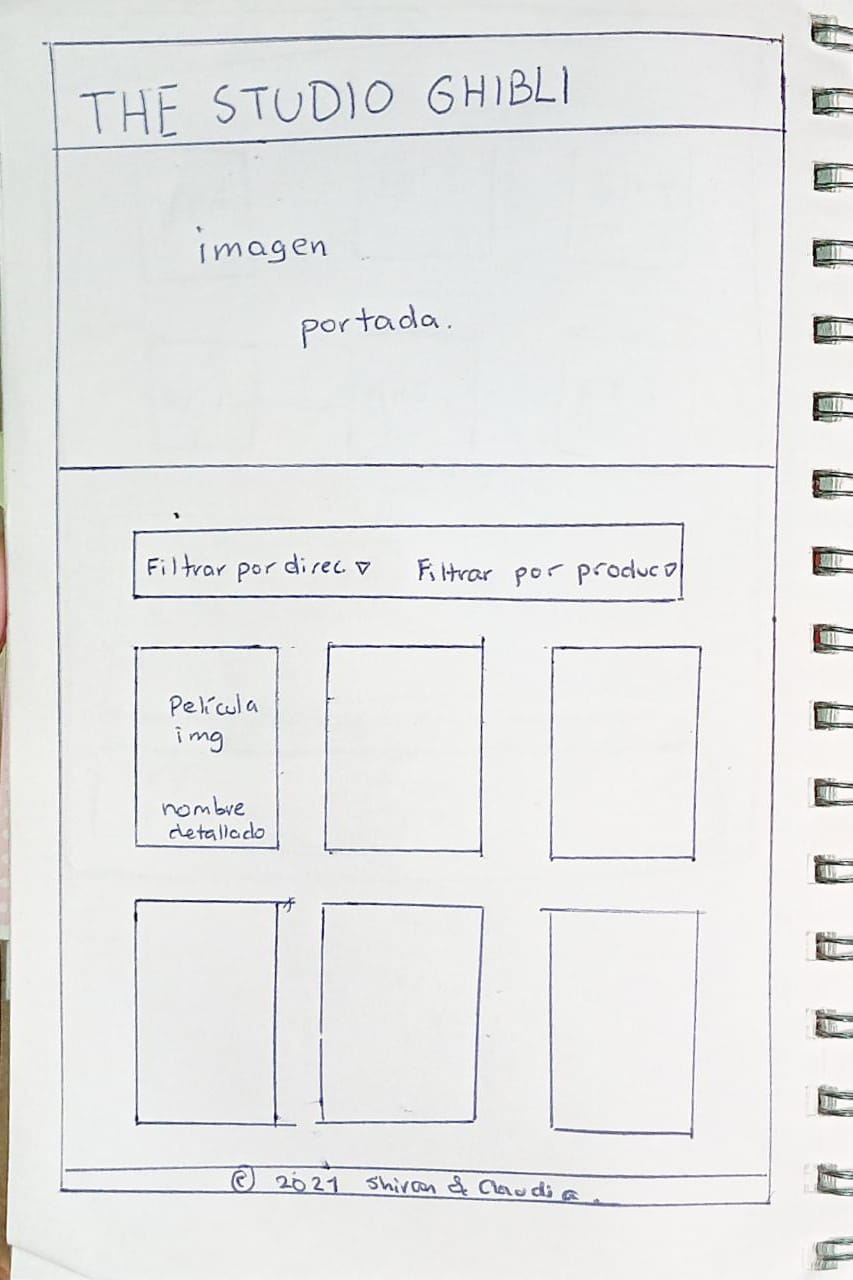 THE STUDIO GHIBLI
imagen
portada.
Filtrar por direc. ▽ Filtrar por produc ▽
Película
img
nombre
detallado
© 2021 Shivan & Claudia.